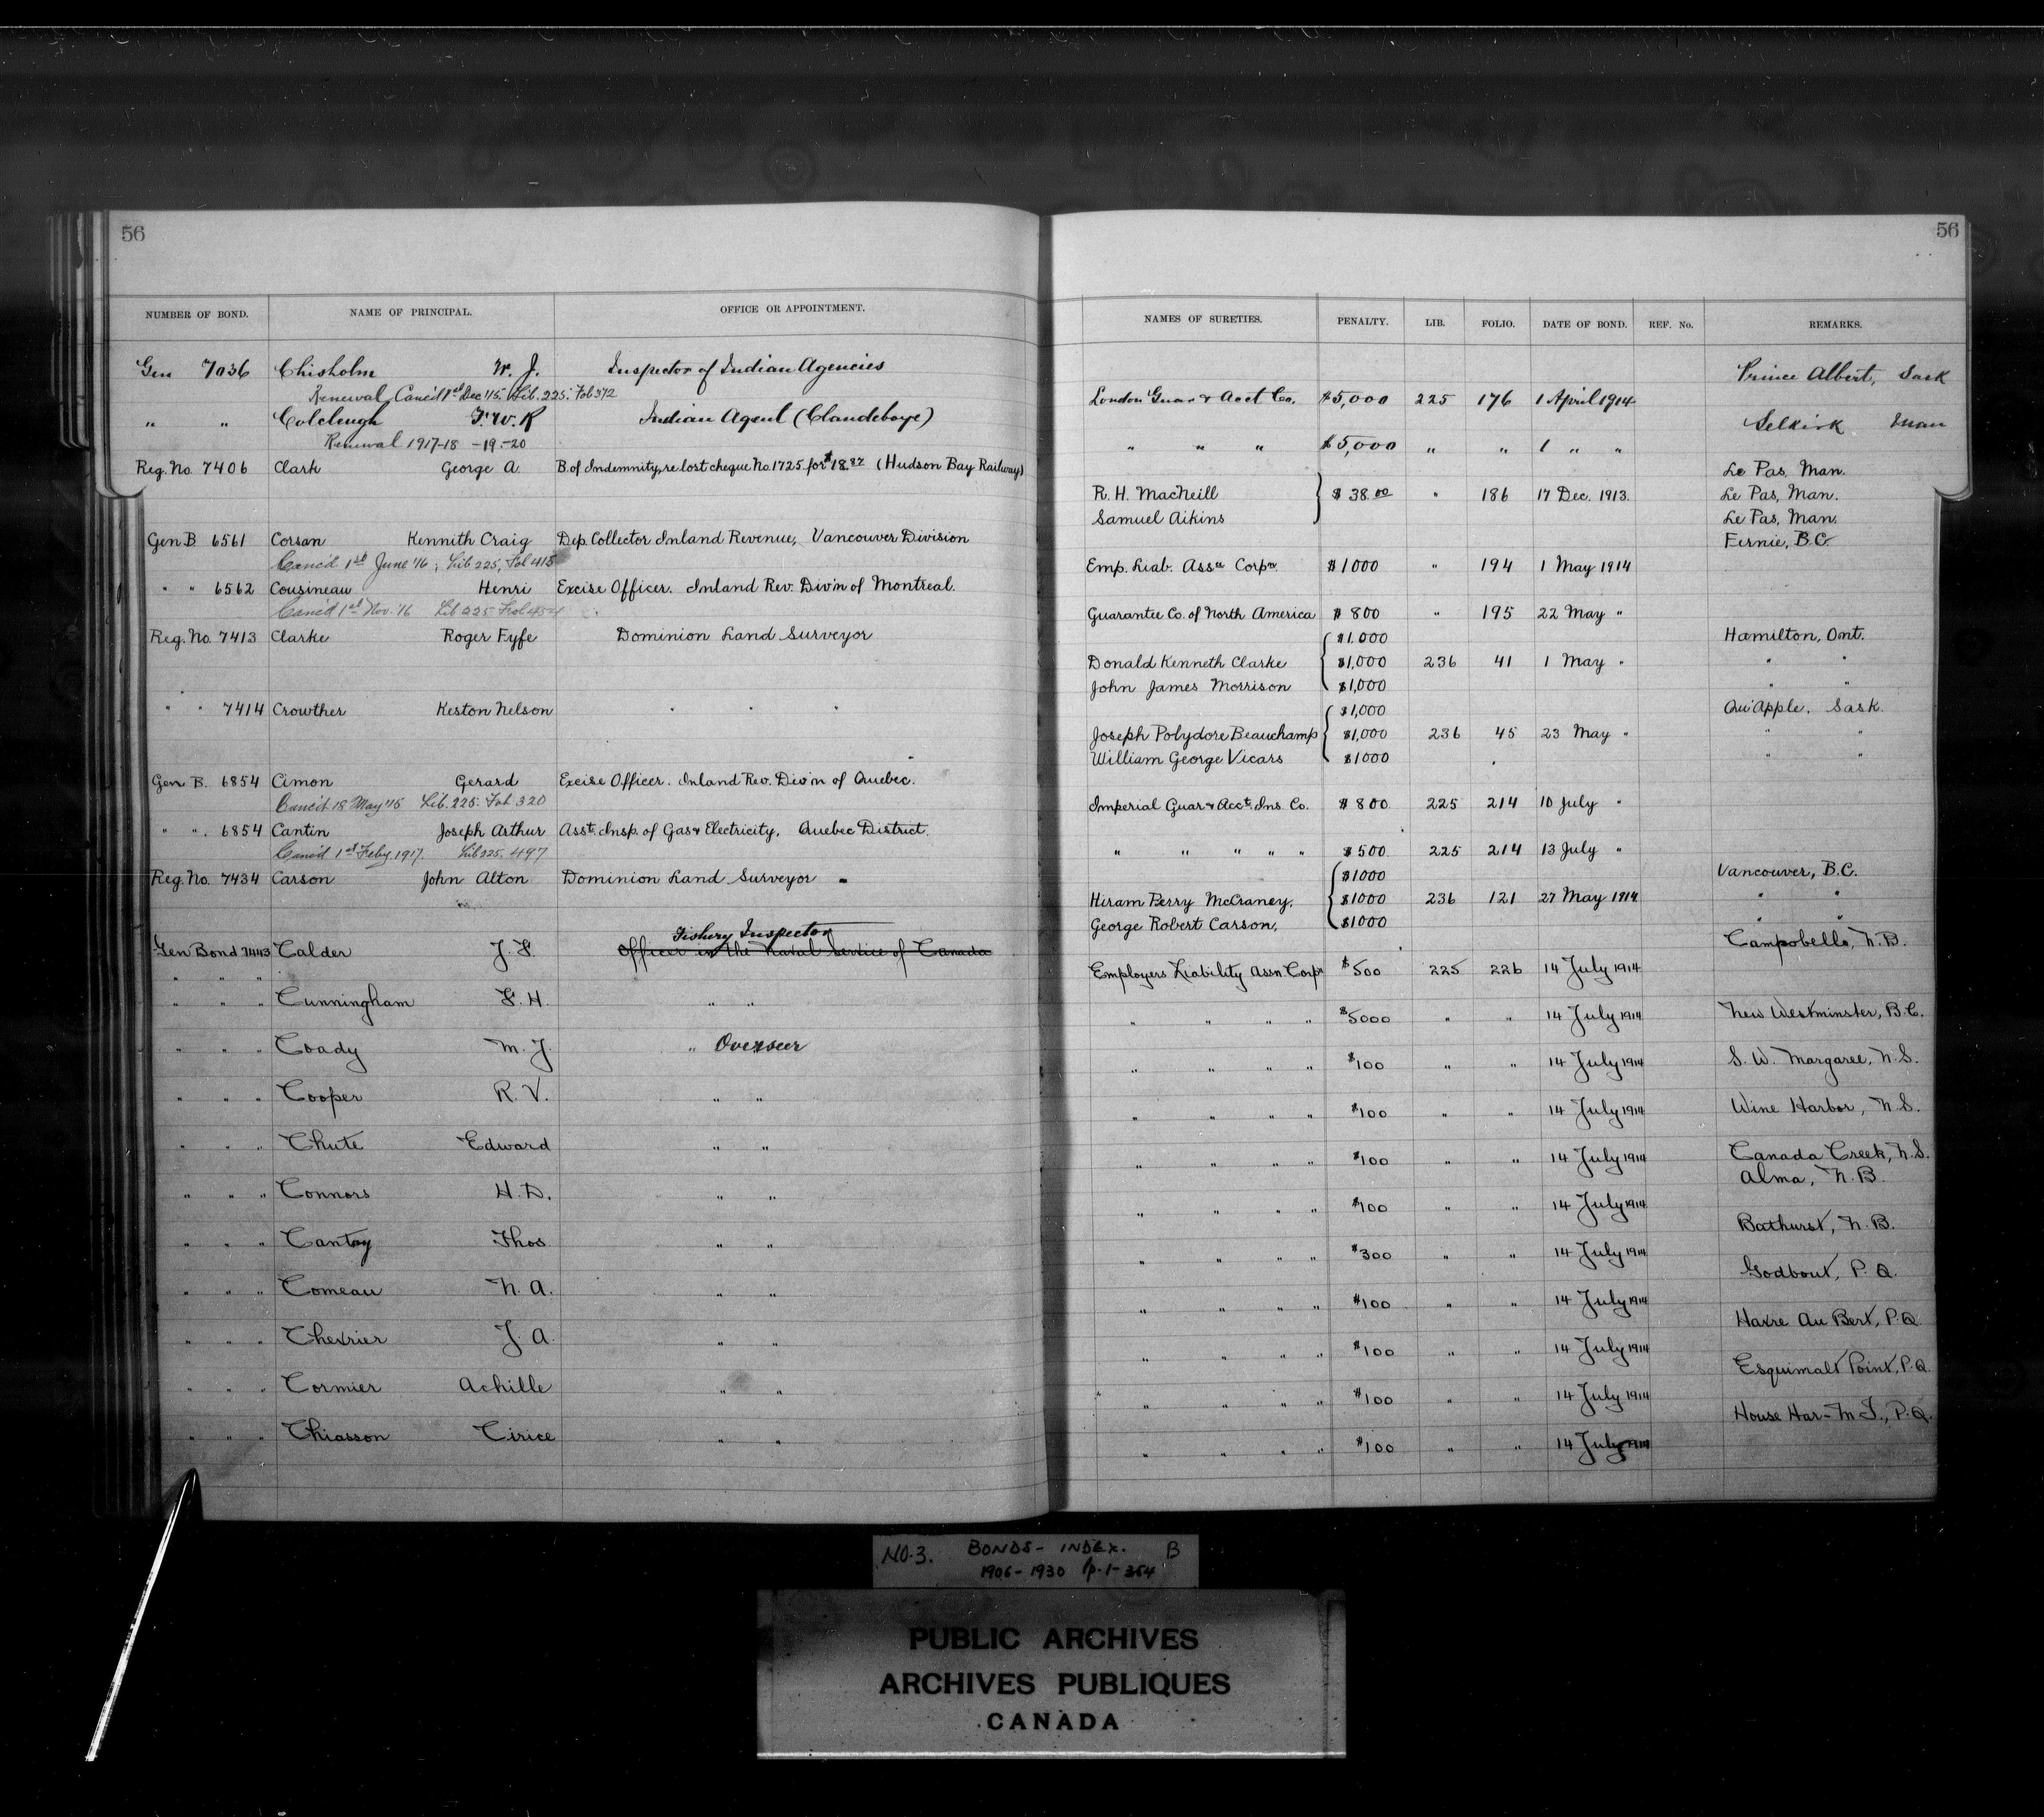 56
NUMBER OF BOND. NAME OF PRINCIPAL. OFFICE OR APPOINTMENT.
Gen 7036 Chisholm W. J. Inspector of Indian Agencies
Renewal Canc'd 1st Dec '15. Lib. 225. Fol 372
" " Colcleugh F. W. R Indian Agent (Clandeboye)
Renewal 1917-18 -19-20
Reg. No. 7406 Clark George A. B. of Indemnity, re lost cheque No. 1725 for $18.87 (Hudson Bay Railway)
Gen B. 6561 Corsan Kennith Craig Dep. Collector Inland Revenue, Vancouver Division
Canc'd 1st June '16; Lib 225, Fol 415
" " 6562 Cousineau Henri Excise Officer. Inland Rev. Div'n of Montreal.
Canc'd 1st Nov. '16 Lib 225 Fol 454
Reg. No. 7413 Clarke Roger Fyfe Dominion Land Surveyor
" " 7414 Crowther Keston Nelson " " "
Gen B. 6854 Cimon Gerard Excise Officer. Inland Rev. Div'n of Quebec.
Canc'd 18 May '15 Lib. 225. Fol. 320
" " 6854 Cantin Joseph Arthur Asst. Insp. of Gas & Electricity, Quebec District.
Canc'd 1st Feby. 1917. Lib 225. 497
Reg. No. 7434 Carson John Alton Dominion Land Surveyor
Fishery Inspector
Gen Bond 7443 Calder J. F. Officer in the Naval Service of Canada
" " " Cunningham F. H. " "
" " " Coady M. J. " Overseer
" " " Cooper R. V. " "
" " " Chute Edward " "
" " " Connors H. D. " "
" " " Canty Thos " "
" " " Comeau N. A. " "
" " " Chevrier J. A. " "
" " " Cormier Achille " "
" " " Chiasson Cirice " "
56
NAMES OF SURETIES. PENALTY. LIB. FOLIO. DATE OF BOND. REF. No. REMARKS.
Prince Albert, Sask
London Guar & Acct Co. $5,000 225 176 1 April 1914
Selkirk Man
" " " $5,000 " " 1 " "
Le Pas, Man.
R. H. MacNeill $38.00 " 186 17 Dec. 1913. Le Pas, Man.
Samuel Aikins Le Pas, Man.
Fernie, B.C.
Emp. Liab. Assce Corpn. $1000 " 194 1 May 1914
Guarantee Co. of North America $800 " 195 22 May "
$1,000 Hamilton, Ont.
Donald Kenneth Clarke $1,000 236 41 1 May " " "
John James Morrison $1,000 " "
$1,000 Qu'Apple, Sask.
Joseph Polydore Beauchamp $1,000 236 45 23 May " " "
William George Vicars $1000 " "
Imperial Guar & Acct. Ins. Co. $800 225 214 10 July "
" " " " " $500 225 214 13 July "
$1000 Vancouver, B.C.
Hiram Berry McCraney, $1000 236 121 27 May 1914 " "
George Robert Carson, $1000 " "
Campobello, N.B.
Employers Liability Assn. Corpn $500 225 226 14 July 1914
" " " " $5000 " " 14 July 1914 New Westminster, B.C.
" " " " $100 " " 14 July 1914 S. W. Margaree, N.S.
" " " " $100 " " 14 July 1914 Wine Harbor, N.S.
" " " " $100 " " 14 July 1914 Canada Creek, N.S.
Alma, N.B.
" " " " $100 " " 14 July 1914
Bathurst, N.B.
" " " " $300 " " 14 July 1914
Godbout, P.Q.
" " " " $100 " " 14 July 1914
Havre Au Bert, P.Q.
" " " " $100 " " 14 July 1914
Esquimalt Point, P.Q
" " " " $100 " " 14 July 1914
House Har- M.I., P.Q.
" " " " $100 " " 14 July 1914
NO. 3. BONDS - INDEX. B
1906-1930 p. 1-364
PUBLIC ARCHIVES
ARCHIVES PUBLIQUES
CANADA